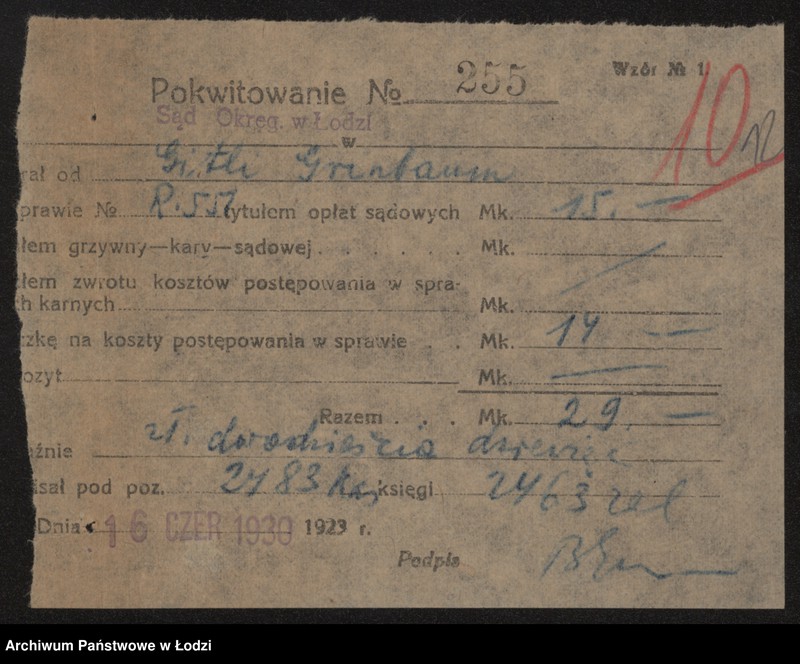 Wzór № 1.
Pokwitowanie № 255
10
Sąd Okręg. w Łodzi
w
rał od Gitli Grinbaum
prawie № R. 557 tytułem opłat sądowych Mk. 15. —
łem grzywny—kary—sądowej . . . . . . Mk.
łem zwrotu kosztów postępowania w spra-
h karnych Mk.
czkę na koszty postępowania w sprawie . . Mk. 14 —
ozyt Mk. —
Razem . . . Mk. 29. —
eźnie zł. dwadzieścia dziewięć
isał pod poz. 2483 księgi 2463
Dnia 16 CZER 1930 1923 r.
Podpis
Archiwum Państwowe w Łodzi